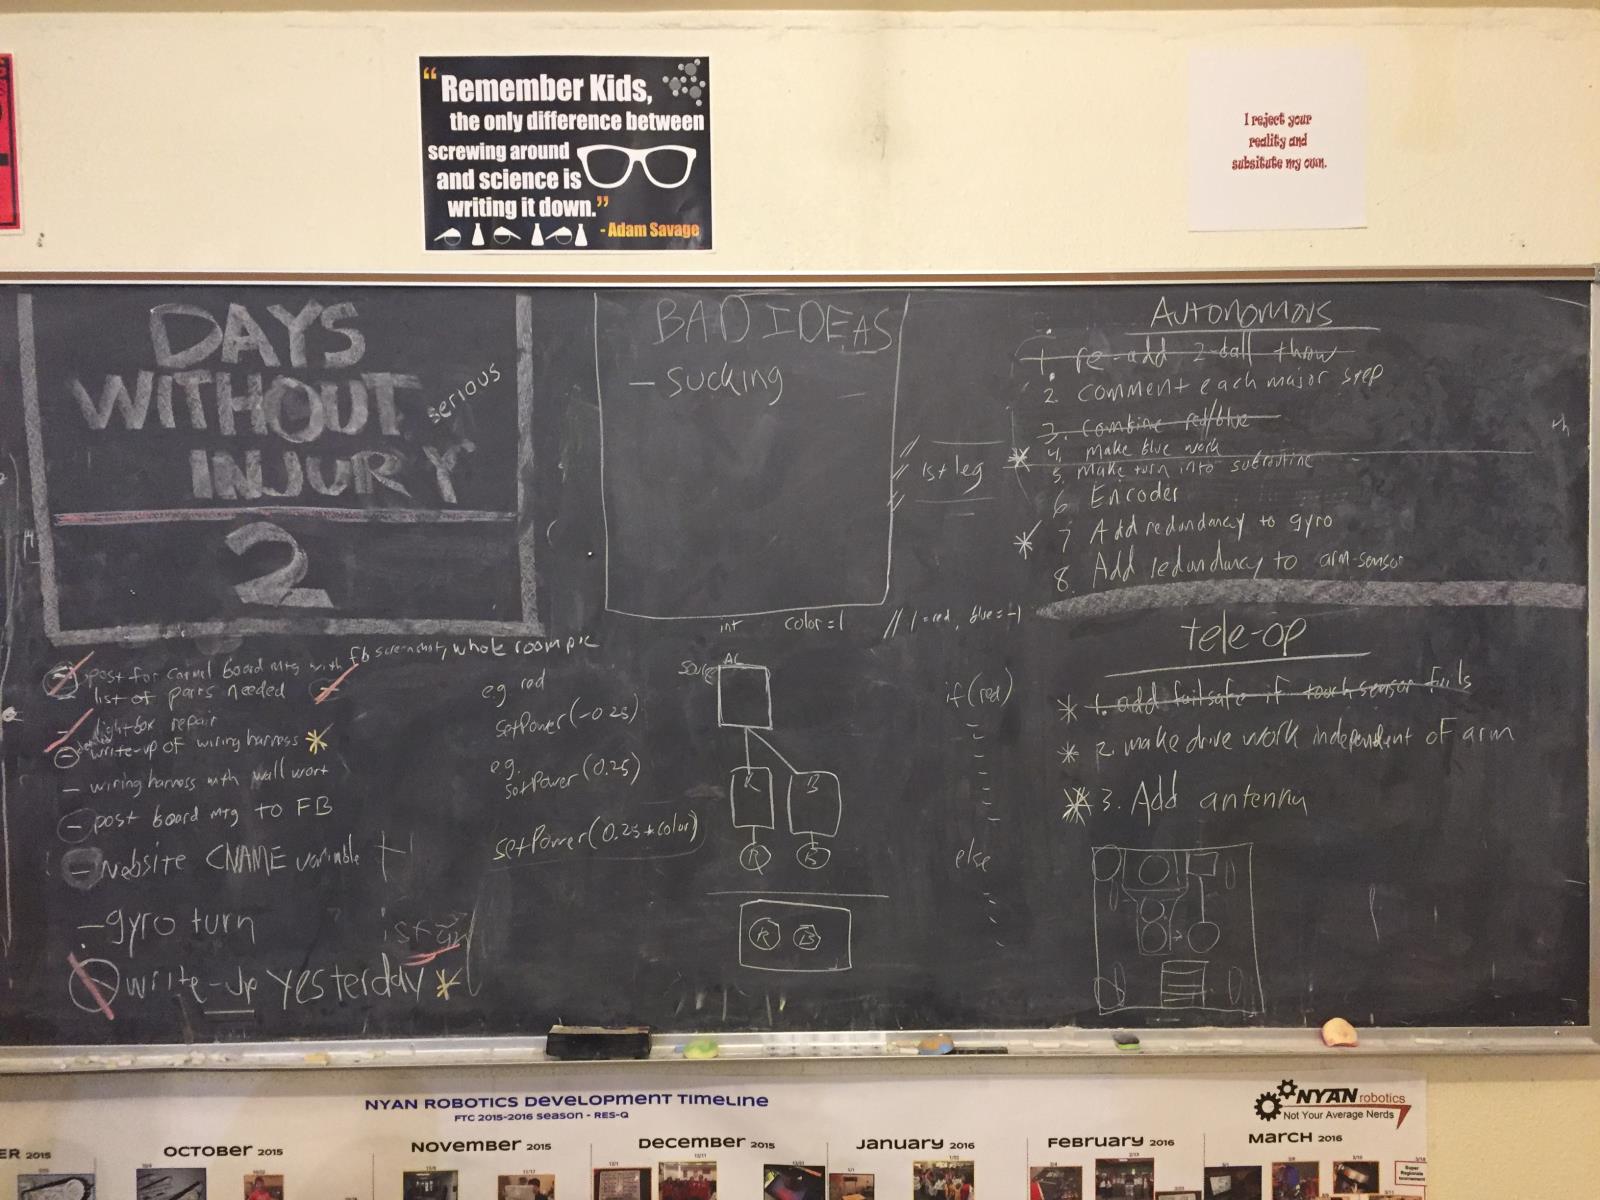 “Remember Kids,
the only difference between
screwing around
and science is
writing it down.”
- Adam Savage
I reject your
reality and
subsitute my own.
DAYS
WITHOUT
serious
INJURY
2
BAD IDEAS
- sucking
1st leg
int color = 1 // 1 = red, blue = -1
Autonomous
1. re-add 2-ball throw
2. comment each major step
3. combine red/blue
* 4. make blue work
5. make turn into subroutine
6 Encoder
* 7 Add redundancy to gyro
8. Add redundancy to arm-sensor
tele-op
* 1. add failsafe if touch sensor fails
* 2. make drive work independent of arm
* 3. Add antenna
- post for Carmel board mtg with fb screenshot, whole room pic
list of parts needed
- lightbox repair
- detailed write-up of wiring harness *
- wiring harness with wall wort
- post board mtg to FB
- Website CNAME variable
- gyro turn
- write-up yesterday *
e.g. red
setPower(-0.25)
e.g.
setPower(0.25)
setPower(0.25*color)
AC
R B
R B
R B
if(red)
else
NYAN ROBOTICS DEVELOPMENT TIMELINE
FTC 2015-2016 SEASON - RES-Q
NYAN robotics
Not Your Average Nerds
ER 2015
OCTOBER 2015
NOVEMBER 2015
DECEMBER 2015
JANUARY 2016
FEBRUARY 2016
MARCH 2016
Super
Regionals